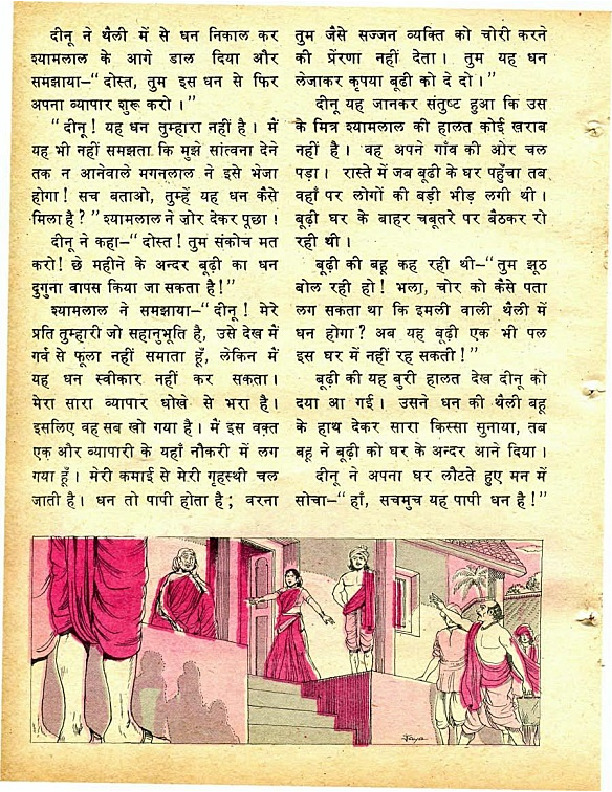 दीनू ने थैली में से धन निकाल कर
श्यामलाल के आगे डाल दिया और
समझाया–“दोस्त, तुम इस धन से फिर
अपना व्यापार शुरू करो।”
“दीनू! यह धन तुम्हारा नहीं है। मैं
यह भी नहीं समझता कि मुझे सांत्वना देने
तक न आनेवाले मगनलाल ने इसे भेजा
होगा! सच बताओ, तुम्हें यह धन कैसे
मिला है?” श्यामलाल ने ज़ोर देकर पूछा।
दीनू ने कहा–“दोस्त! तुम संकोच मत
करो! छे महीने के अन्दर बूढ़ी का धन
दुगुना वापस किया जा सकता है!”
श्यामलाल ने समझाया–“दीनू! मेरे
प्रति तुम्हारी जो सहानुभूति है, उसे देख मैं
गर्व से फूला नहीं समाता हूँ, लेकिन मैं
यह धन स्वीकार नहीं कर सकता।
मेरा सारा व्यापार धोखे से भरा है।
इसलिए वह सब खो गया है। मैं इस वक़्त
एक और व्यापारी के यहाँ नौकरी में लग
गया हूँ। मेरी कमाई से मेरी गृहस्थी चल
जाती है। धन तो पापी होता है; वरना
तुम जैसे सज्जन व्यक्ति को चोरी करने
की प्रेंरणा नहीं देता। तुम यह धन
लेजाकर कृपया बूढ़ी को दे दो।”
दीनू यह जानकर संतुष्ट हुआ कि उस
के मित्र श्यामलाल की हालत कोई ख़राब
नहीं है। वह अपने गाँव की ओर चल
पड़ा। रास्ते में जब बूढ़ी के घर पहुँचा तब
वहाँ पर लोगों की बड़ी भीड़ लगी थी।
बूढ़ी घर के बाहर चबूतरे पर बैठकर रो
रही थी।
बूढ़ी की बहू कह रही थी–“तुम झूठ
बोल रही हो! भला, चोर को कैसे पता
लग सकता था कि इमली वाली थैली में
धन होगा? अब यह बूढ़ी एक भी पल
इस घर में नहीं रह सकती!”
बूढ़ी की यह बुरी हालत देख दीनू को
दया आ गई। उसने धन की थैली बहू
के हाथ देकर सारा क़िस्सा सुनाया, तब
बहू ने बूढ़ी को घर के अन्दर आने दिया।
दीनू ने अपना घर लौटते हुए मन में
सोचा–“हाँ, सचमुच यह पापी धन है!”